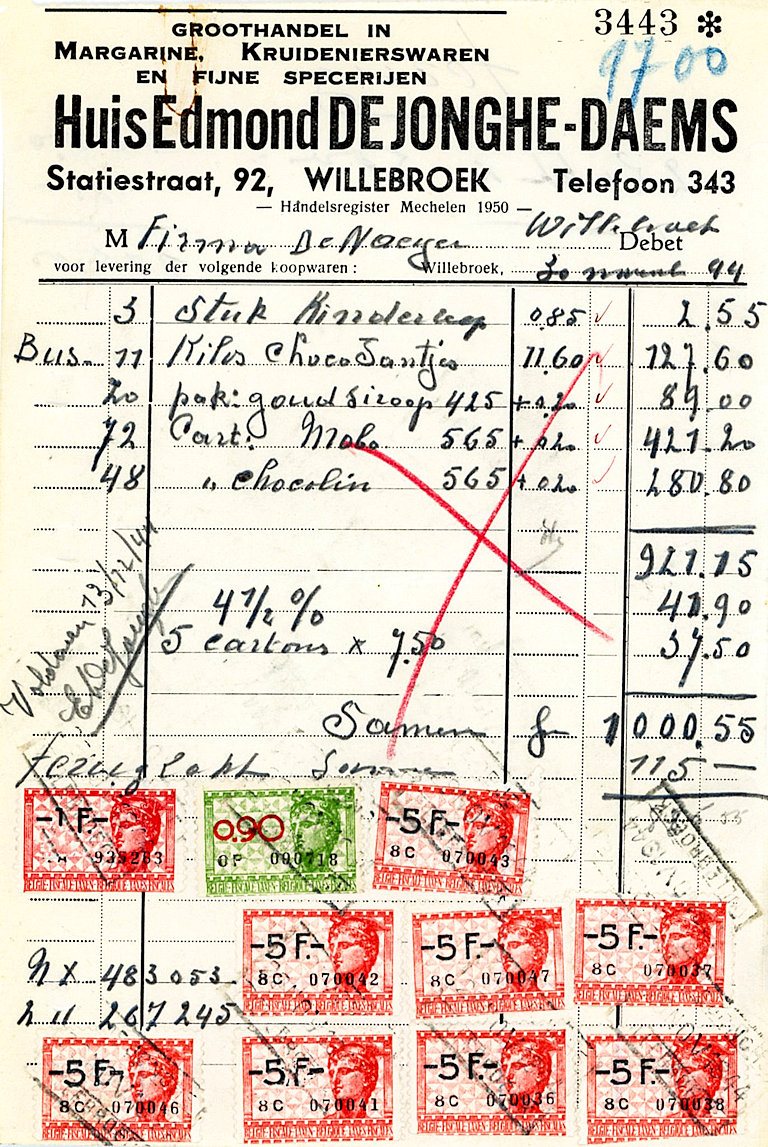 3443 ✻
GROOTHANDEL IN
MARGARINE, KRUIDENIERSWAREN
EN FIJNE SPECERIJEN
1700
Huis Edmond DE JONGHE-DAEMS
Statiestraat, 92, WILLEBROEK Telefoon 343
— Handelsregister Mechelen 1950 —
M Firma De Naeyer Willebroek Debet
voor levering der volgende koopwaren : Willebroek, 30 44
3 Stuk 0.85 2.55
Bus. 11 Kilos Choco Santjes 11.60 127.60
20 pak: goud siroop 425 + 0.20 89.00
72 Cart: Mobo 565 + 0.20 421.20
48 " chocolin 565 + 0.20 280.80
921.15
4 1/2 % 41.90
5 cartons x 7.50 37.50
Voldaan 13/12/44
EdDeJonghe
Samen fr 1000.55
115 —
-1 F.- 935263
0.90 OP 090718
-5 F.- 8C 070043
BELGIE-FISCALE ZAKEN-BELGIQUE-TAXES FISCALES
-5 F.- 8C 070042
-5 F.- 8C 070047
-5 F.- 8C 070037
N x 483053
267245
-5 F.- 8C 070046
-5 F.- 8C 070041
-5 F.- 8C 070036
-5 F.- 8C 070038